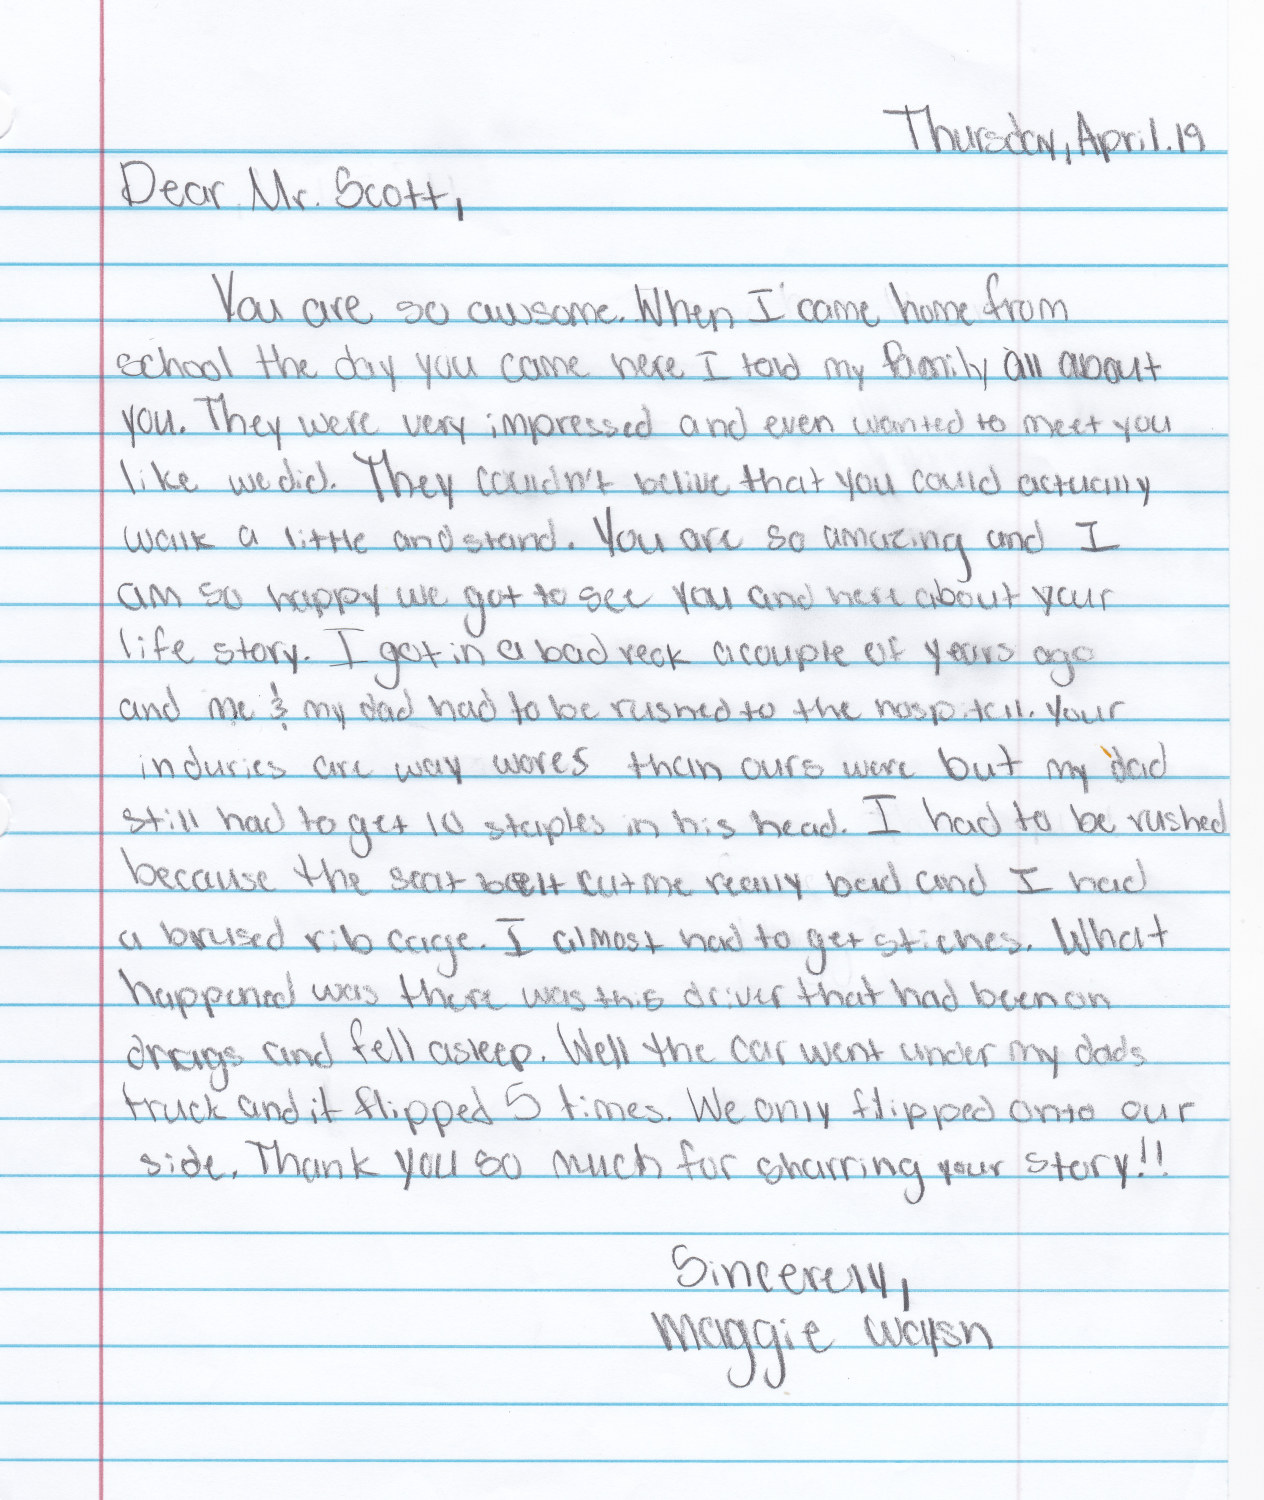 Thursday, April.19
Dear Mr. Scott,
You are so awsome. When I came home from
school the day you came here I told my family all about
you. They were very impressed and even wanted to meet you
like we did. They couldn't belive that you could actually
walk a little and stand. You are so amazing and I
am so happy we got to see you and here about your
life story. I got in a bad reck a couple of years ago
and me & my dad had to be rushed to the hospitall. Your
induries are way wores than ours were but my dad
still had to get 10 staples in his head. I had to be rushed
because the seat belt cut me really bad and I had
a brused rib cage. I almost had to get stiches. What
happened was there was this driver that had been on
drugs and fell asleep. Well the car went under my dads
truck and it flipped 5 times. We only flipped onto our
side. Thank you so much for sharring your story!!
Sincerely,
Maggie